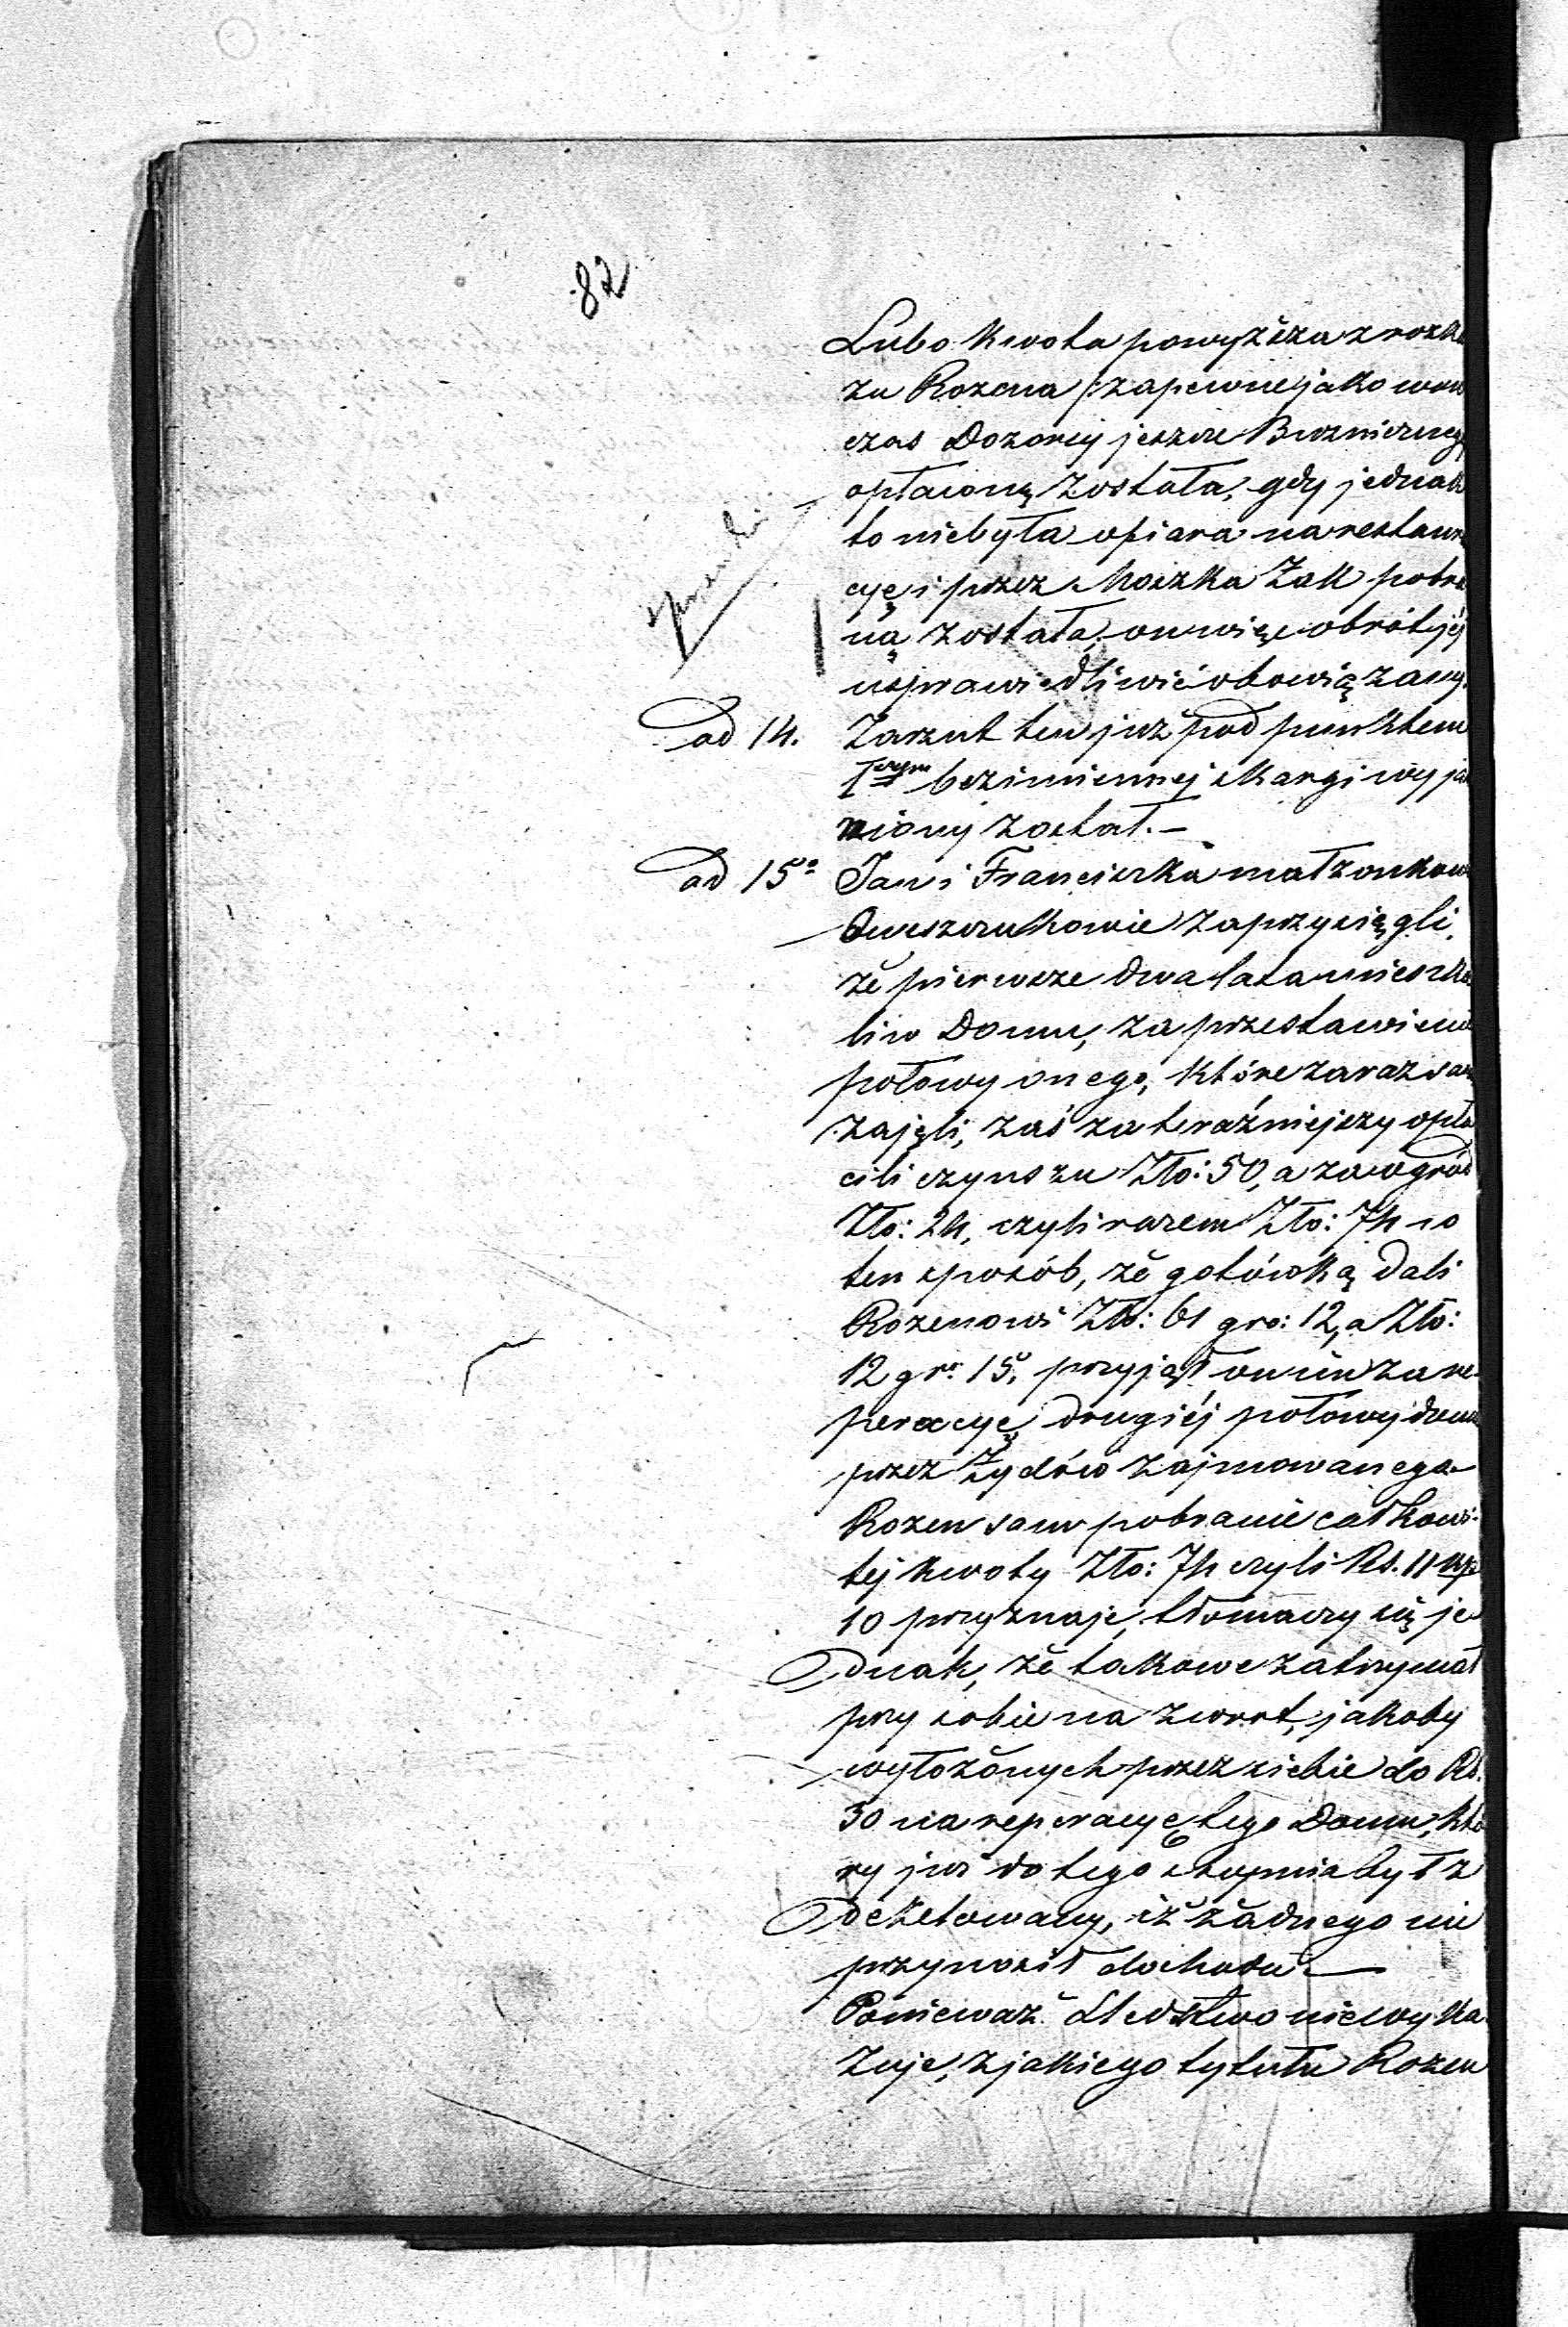 82
Lubo kwota powyższa z rozka
zu Rozena /: zapewne jako wów
czas Dozorcy jeszcze Buzniczneg
opłaconą została, gdy jednak
to niebyła ofiara na restaura
cyę i przez Moszka Żak pobra
ną została, on więc obrót jéj
usprawiedliwić obowiązany.
ad 14. Zarzut ten już pod punktem
1wszym bezimiennej skargi wyja
niony został. –
ad 15o Jan i Franciszka małżonkow
zaprzysięgli,
że pierwsze dwa lata mieszka
li w Domu, za przestawienie
połowy onego, które zaraz sam
zajęli, zaś za teraźniejszy opła
cili czynszu Złp: 50, a za ogród
Złp: 24, czyli razem Złp: 74 w
ten sposób, że gotówką dali
Rozenowi Złp: 61 gro: 12, a Złp:
12 gr. 15, przyjął on im za re-
peracyę drugiéj połowy domu
przez Żydów zajmowanego
Rozen sam pobranie całkowi-
téj kwoty Złp: 74 czyli Rs. 11 kp.
10 przyznaje, tłomaczy się je
dnak, że takowe zatrzymał
przy sobie na zwrot, jakoby
wyłożonych przez siebie do Rs.
30 na reperacyę tego Domu, któ
ry już do tego stopnia był z
dezelowany, iż żadnego nie
przynosił dochodu. —
Ponieważ Śledztwo niewyka
zuje, z jakiego tytułu Rozen